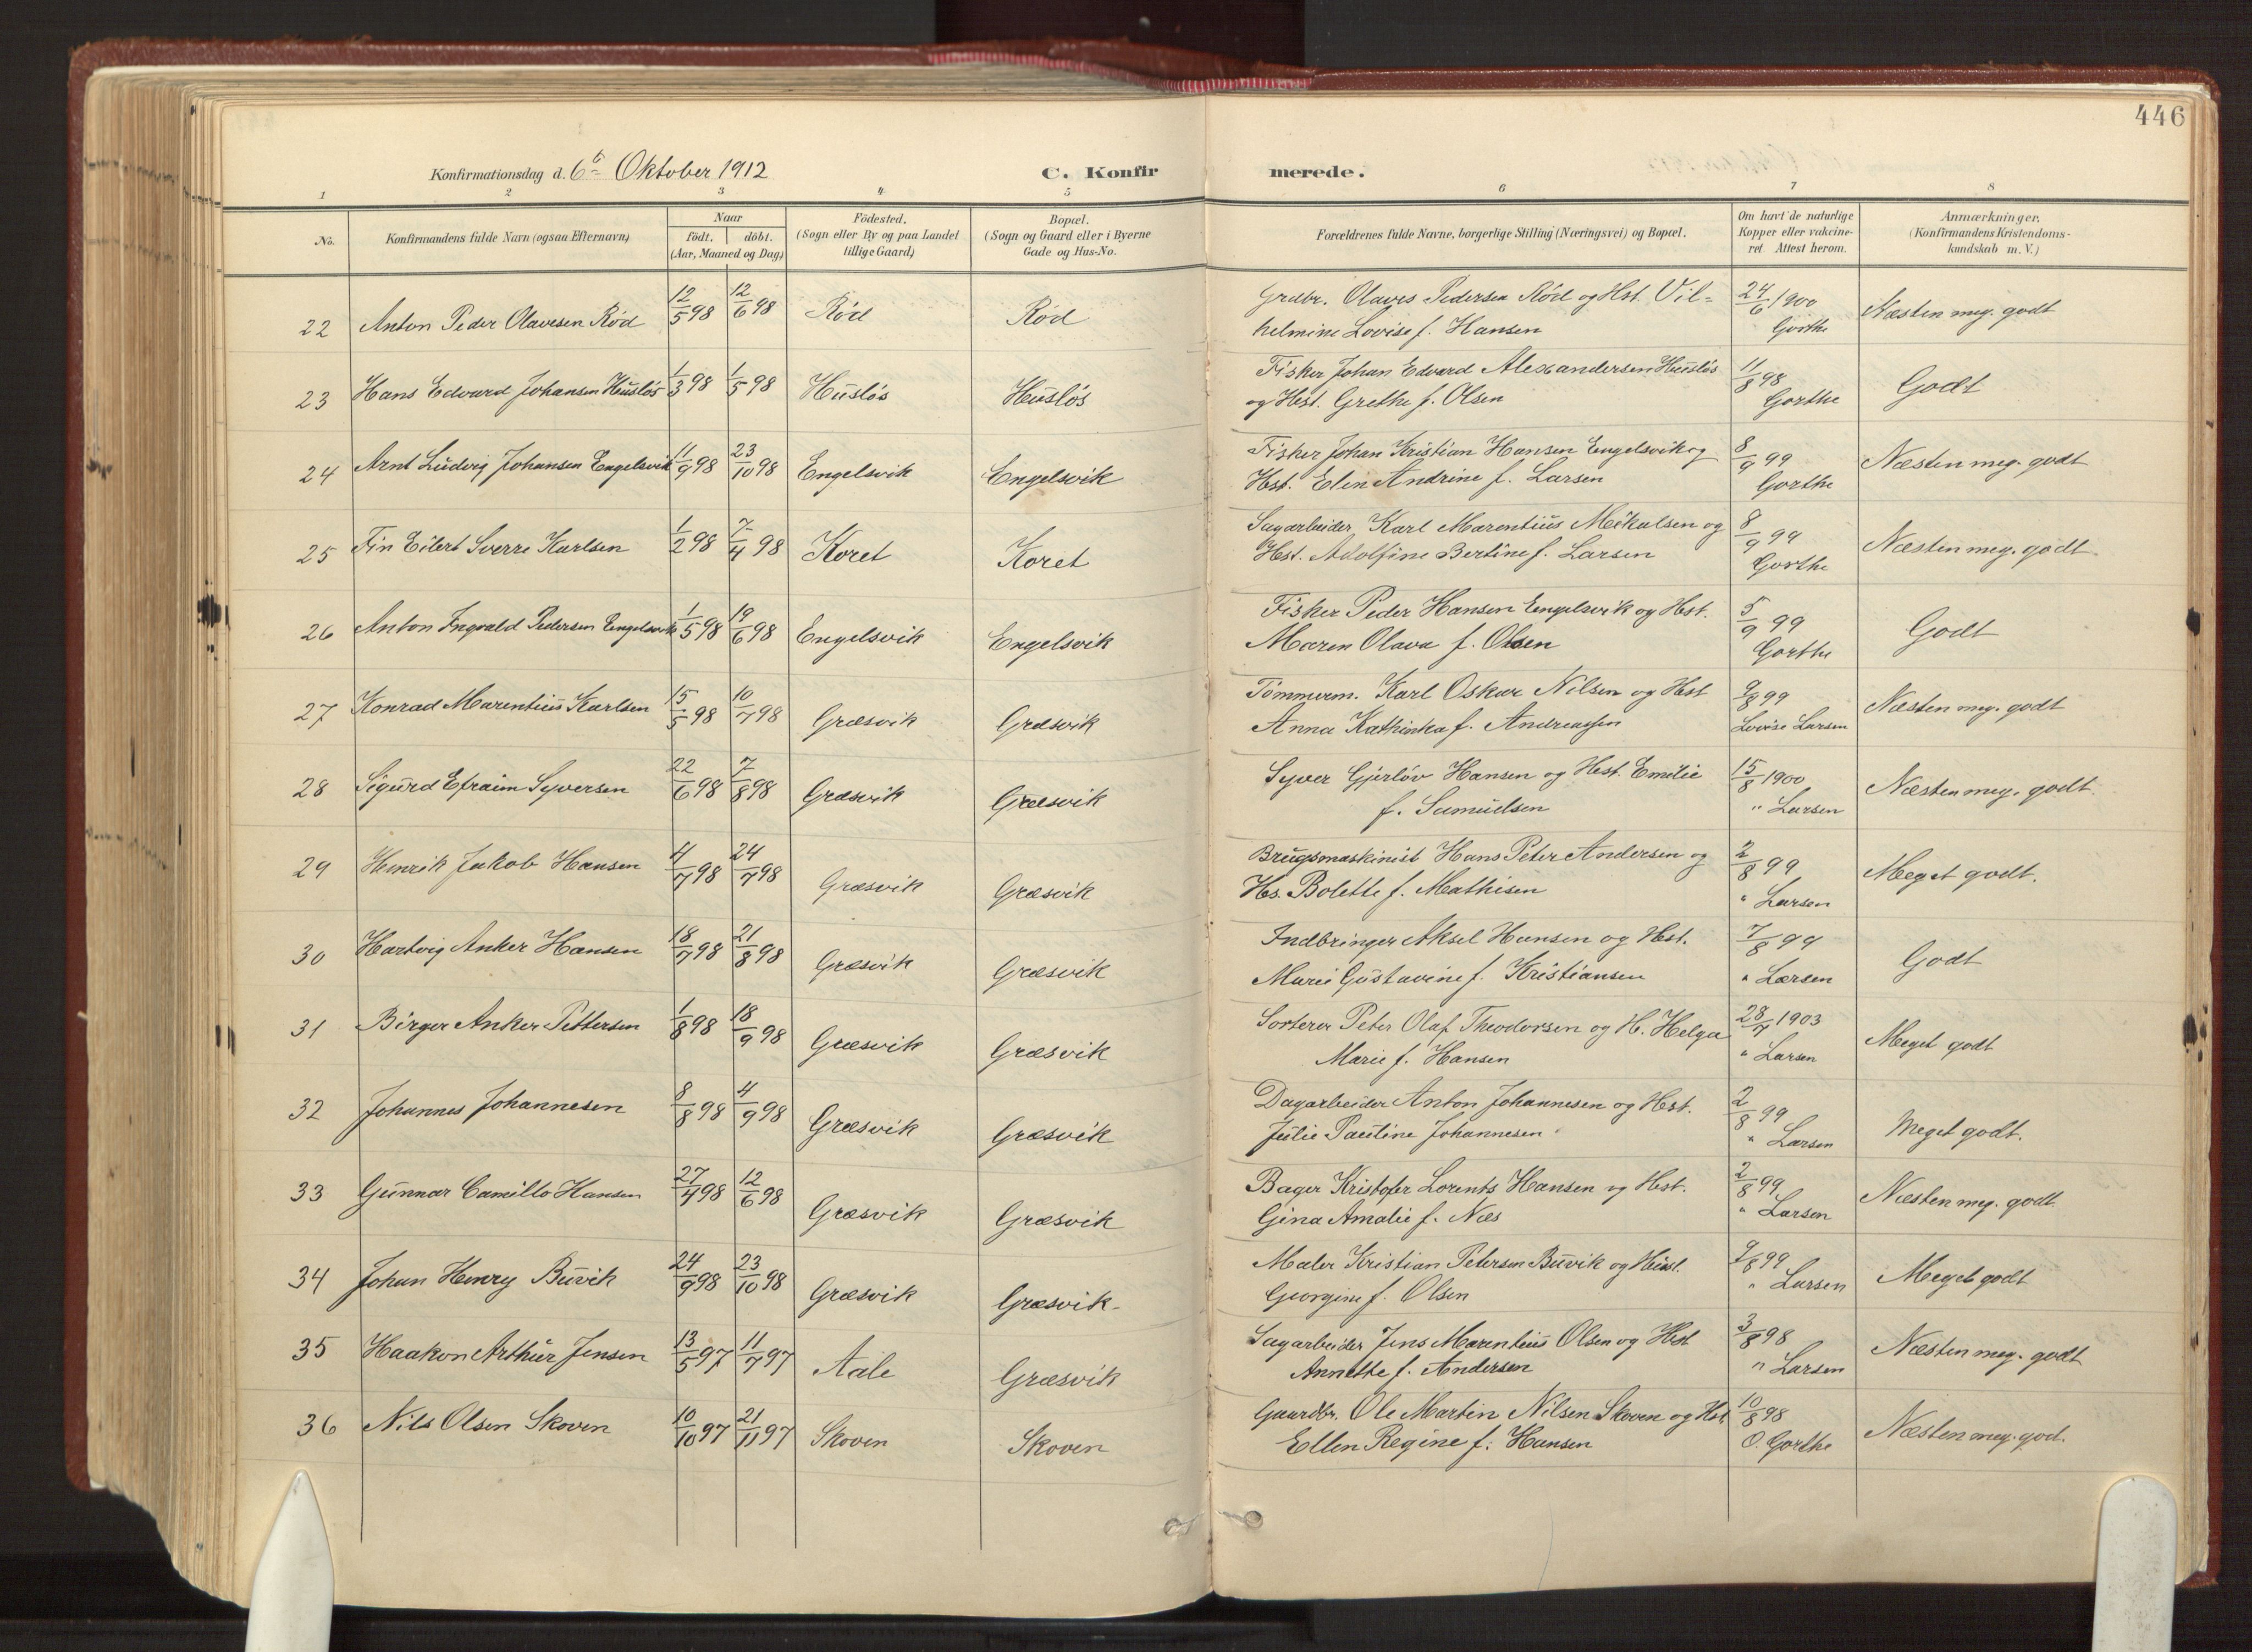 446
Konfirmationsdag d. 6te Oktober 1912
C. Konfirmerede.
1 2 3 4 5 6 7 8
No.
Konfirmandens fulde Navn (ogsaa Efternavn)
Naar
födt. döbt.
(Aar, Maaned og Dag)
Födested.
(Sogn eller By og paa Landet
tillige Gaard)
Bopæl.
(Sogn og Gaard eller i Byerne
Gade og Hus-No.
Forældrenes fulde Navne, borgerlige Stilling (Næringsvei) og Bopæl.
Om havt de naturlige
Kopper eller vakcine-
ret Attest herom.
Anmærkninger.
(Konfirmandens Kristendoms-
kundskab m. V.)
22 Anton Peder Olavesen Rød 12/5 98 12/6 98 Rød Rød Grdbr. Olaves Pedersen Rød og Hst. Vil-
helmine Lovise f. Hansen 24/6 1900 Gorthe Næsten meg. godt
23 Hans Edvard Johansen Husløs 1/3 98 1/5 98 Husløs Husløs Fisker Johan Edvard Alexandersen Husløs
og Hst. Grethe f. Olsen 11/8 98 Gorthe Godt
24 Arnt Ludvig Johansen Engelsvik 11/9 98 23/10 98 Engelsvik Engelsvik Fisker Johan Kristian Hansen Engelsvik og
Hst. Elen Andrine f. Larsen 8/9 99 Gorthe Næsten meg. godt
25 Fin Eilert Sverre Karlsen 1/2 98 7/4 98 Koret Koret Sagarbeider Karl Marentius Mikalsen og
Hst. Adolfine Bertine f. Larsen 8/9 99 Gorthe Næsten meg. godt.
26 Anton Ingvald Pedersen Engelsvik 1/5 98 19/6 98 Engelsvik Engelsvik Fisker Peder Hansen Engelsvik og Hst.
Maren Olava f. Olsen 5/9 99 Gorthe Godt
27 Konrad Marentius Karlsen 15/5 98 10/7 98 Græsvik Græsvik Tömmerm. Karl Oskar Nilsen og Hst
Anna Kathinka f. Andreassen 9/8 99 Lovise Larsen Næsten meg. godt
28 Sigurd Efraim Syversen 22/6 98 7/8 98 Græsvik Græsvik Syver Gjerløv Hansen og Hst. Emilie
f. Samuelsen 15/8 1900 " Larsen Næsten meg. godt.
29 Henrik Jakob Hansen 4/7 98 24/7 98 Græsvik Græsvik Brugsmaskinist Hans Peter Andersen og
Hs. Bolette f. Mathisen 2/8 99 " Larsen Meget godt.
30 Hartvig Anker Hansen 18/7 98 21/8 98 Græsvik Græsvik Indbringer Aksel Hansen og Hst.
Marie Gustavine f. Kristiansen 7/8 99 " Larsen Godt
31 Birger Anker Pettersen 1/8 98 18/9 98 Græsvik Græsvik Sorterer Peter Olaf Theodorsen og H. Helga
Marie f. Hansen 28/7 1903 " Larsen Meget godt
32 Johannes Johannesen 8/8 98 4/9 98 Græsvik Græsvik Dagarbeider Anton Johannesen og Hst.
Julie Pauline Johannesen 2/8 99 " Larsen Meget godt.
33 Gunnar Camillo Hansen 27/4 98 12/6 98 Græsvik Græsvik Bager Kristofer Lorents Hansen og Hst.
Gina Amalie f. Næs 2/8 99 " Larsen Næsten meg. godt.
34 Johan Henry Buvik 24/9 98 23/10 98 Græsvik Græsvik Maler Kristian Petersen Buvik og Hust.
Georgine f. Olsen 9/8 99 " Larsen Meget godt
35 Haakon Arthur Jensen 13/5 97 11/7 97 Aale Græsvik Sagarbeider Jens Marentius Olsen og Hst
Annette f. Andersen 3/8 98 " Larsen Næsten meg. godt
36 Nils Olsen Skoven 10/10 97 21/11 97 Skoven Skoven Gaardbr. Ole Martin Nilsen Skoven og Hst.
Ellen Regine f. Hansen 10/8 98 O. Gorthe Næsten meg. god.